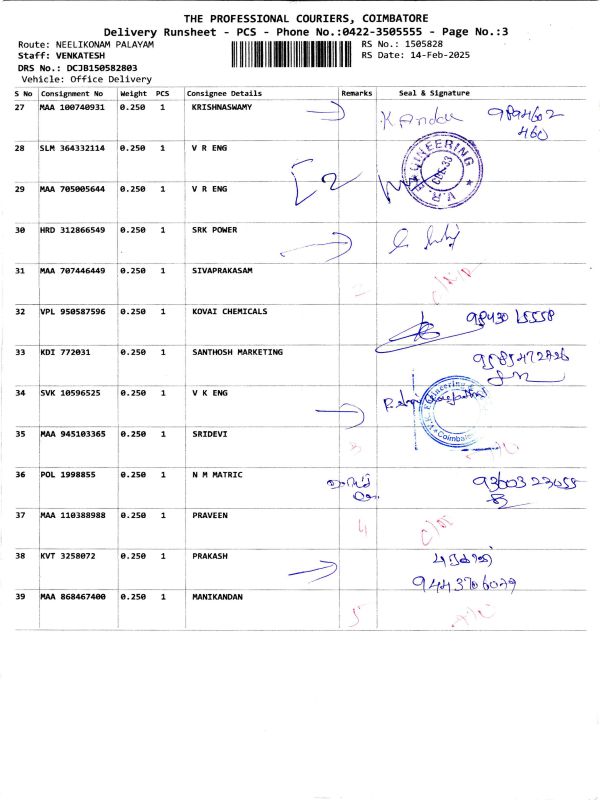 THE PROFESSIONAL COURIERS, COIMBATORE
Delivery Runsheet - PCS - Phone No.:0422-3505555 - Page No.:3
Route: NEELIKONAM PALAYAM RS No.: 1505828
Staff: VENKATESH RS Date: 14-Feb-2025
DRS No.: DCJB150582803
Vehicle: Office Delivery
S No Consignment No Weight PCS Consignee Details Remarks Seal & Signature
27 MAA 100740931 0.250 1 KRISHNASWAMY 9894602
460
28 SLM 364332114 0.250 1 V R ENG
29 MAA 705005644 0.250 1 V R ENG
30 HRD 312866549 0.250 1 SRK POWER
31 MAA 707446449 0.250 1 SIVAPRAKASAM
32 VPL 950587596 0.250 1 KOVAI CHEMICALS 98430 15558
33 KDI 772031 0.250 1 SANTHOSH MARKETING
34 SVK 10596525 0.250 1 V K ENG
35 MAA 945103365 0.250 1 SRIDEVI 3
36 POL 1998855 0.250 1 N M MATRIC 93603 23055
37 MAA 110388988 0.250 1 PRAVEEN 4
38 KVT 3258072 0.250 1 PRAKASH
39 MAA 868467400 0.250 1 MANIKANDAN 5